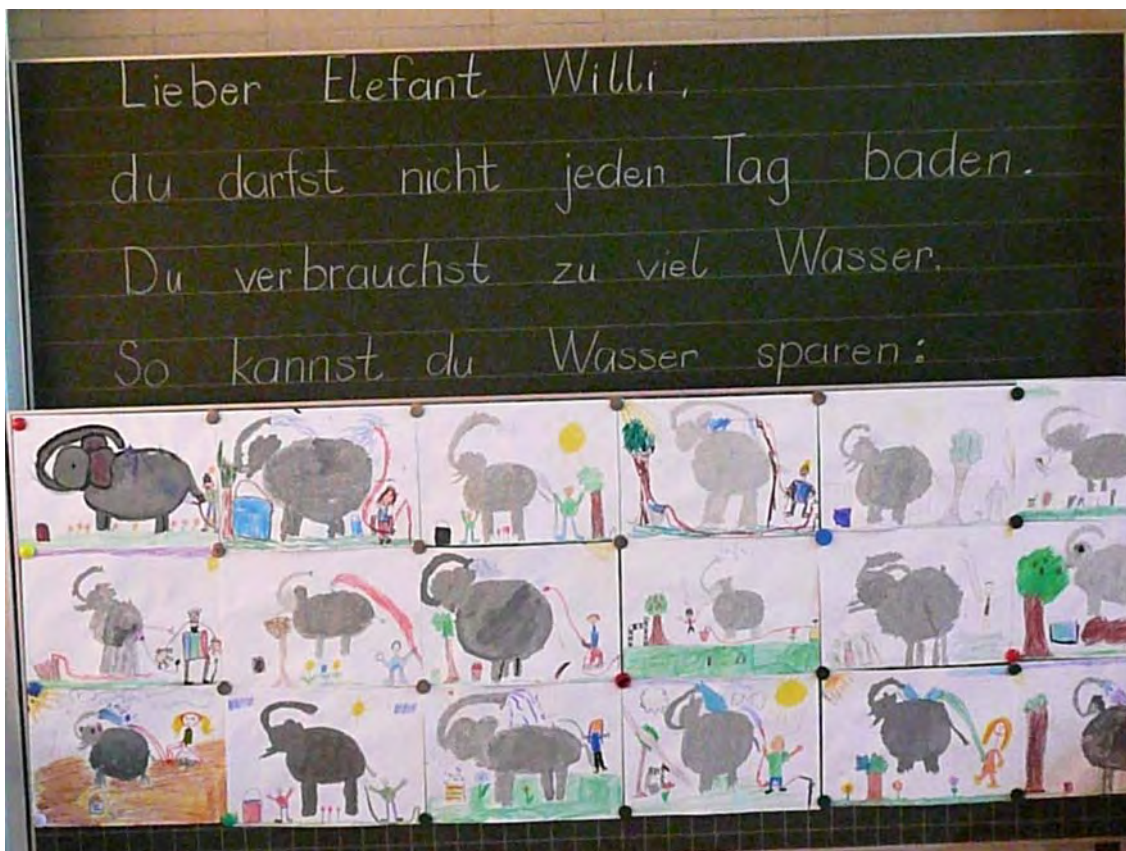 Lieber Elefant Willi,
du darfst nicht jeden Tag baden.
Du verbrauchst zu viel Wasser.
So kannst du Wasser sparen: